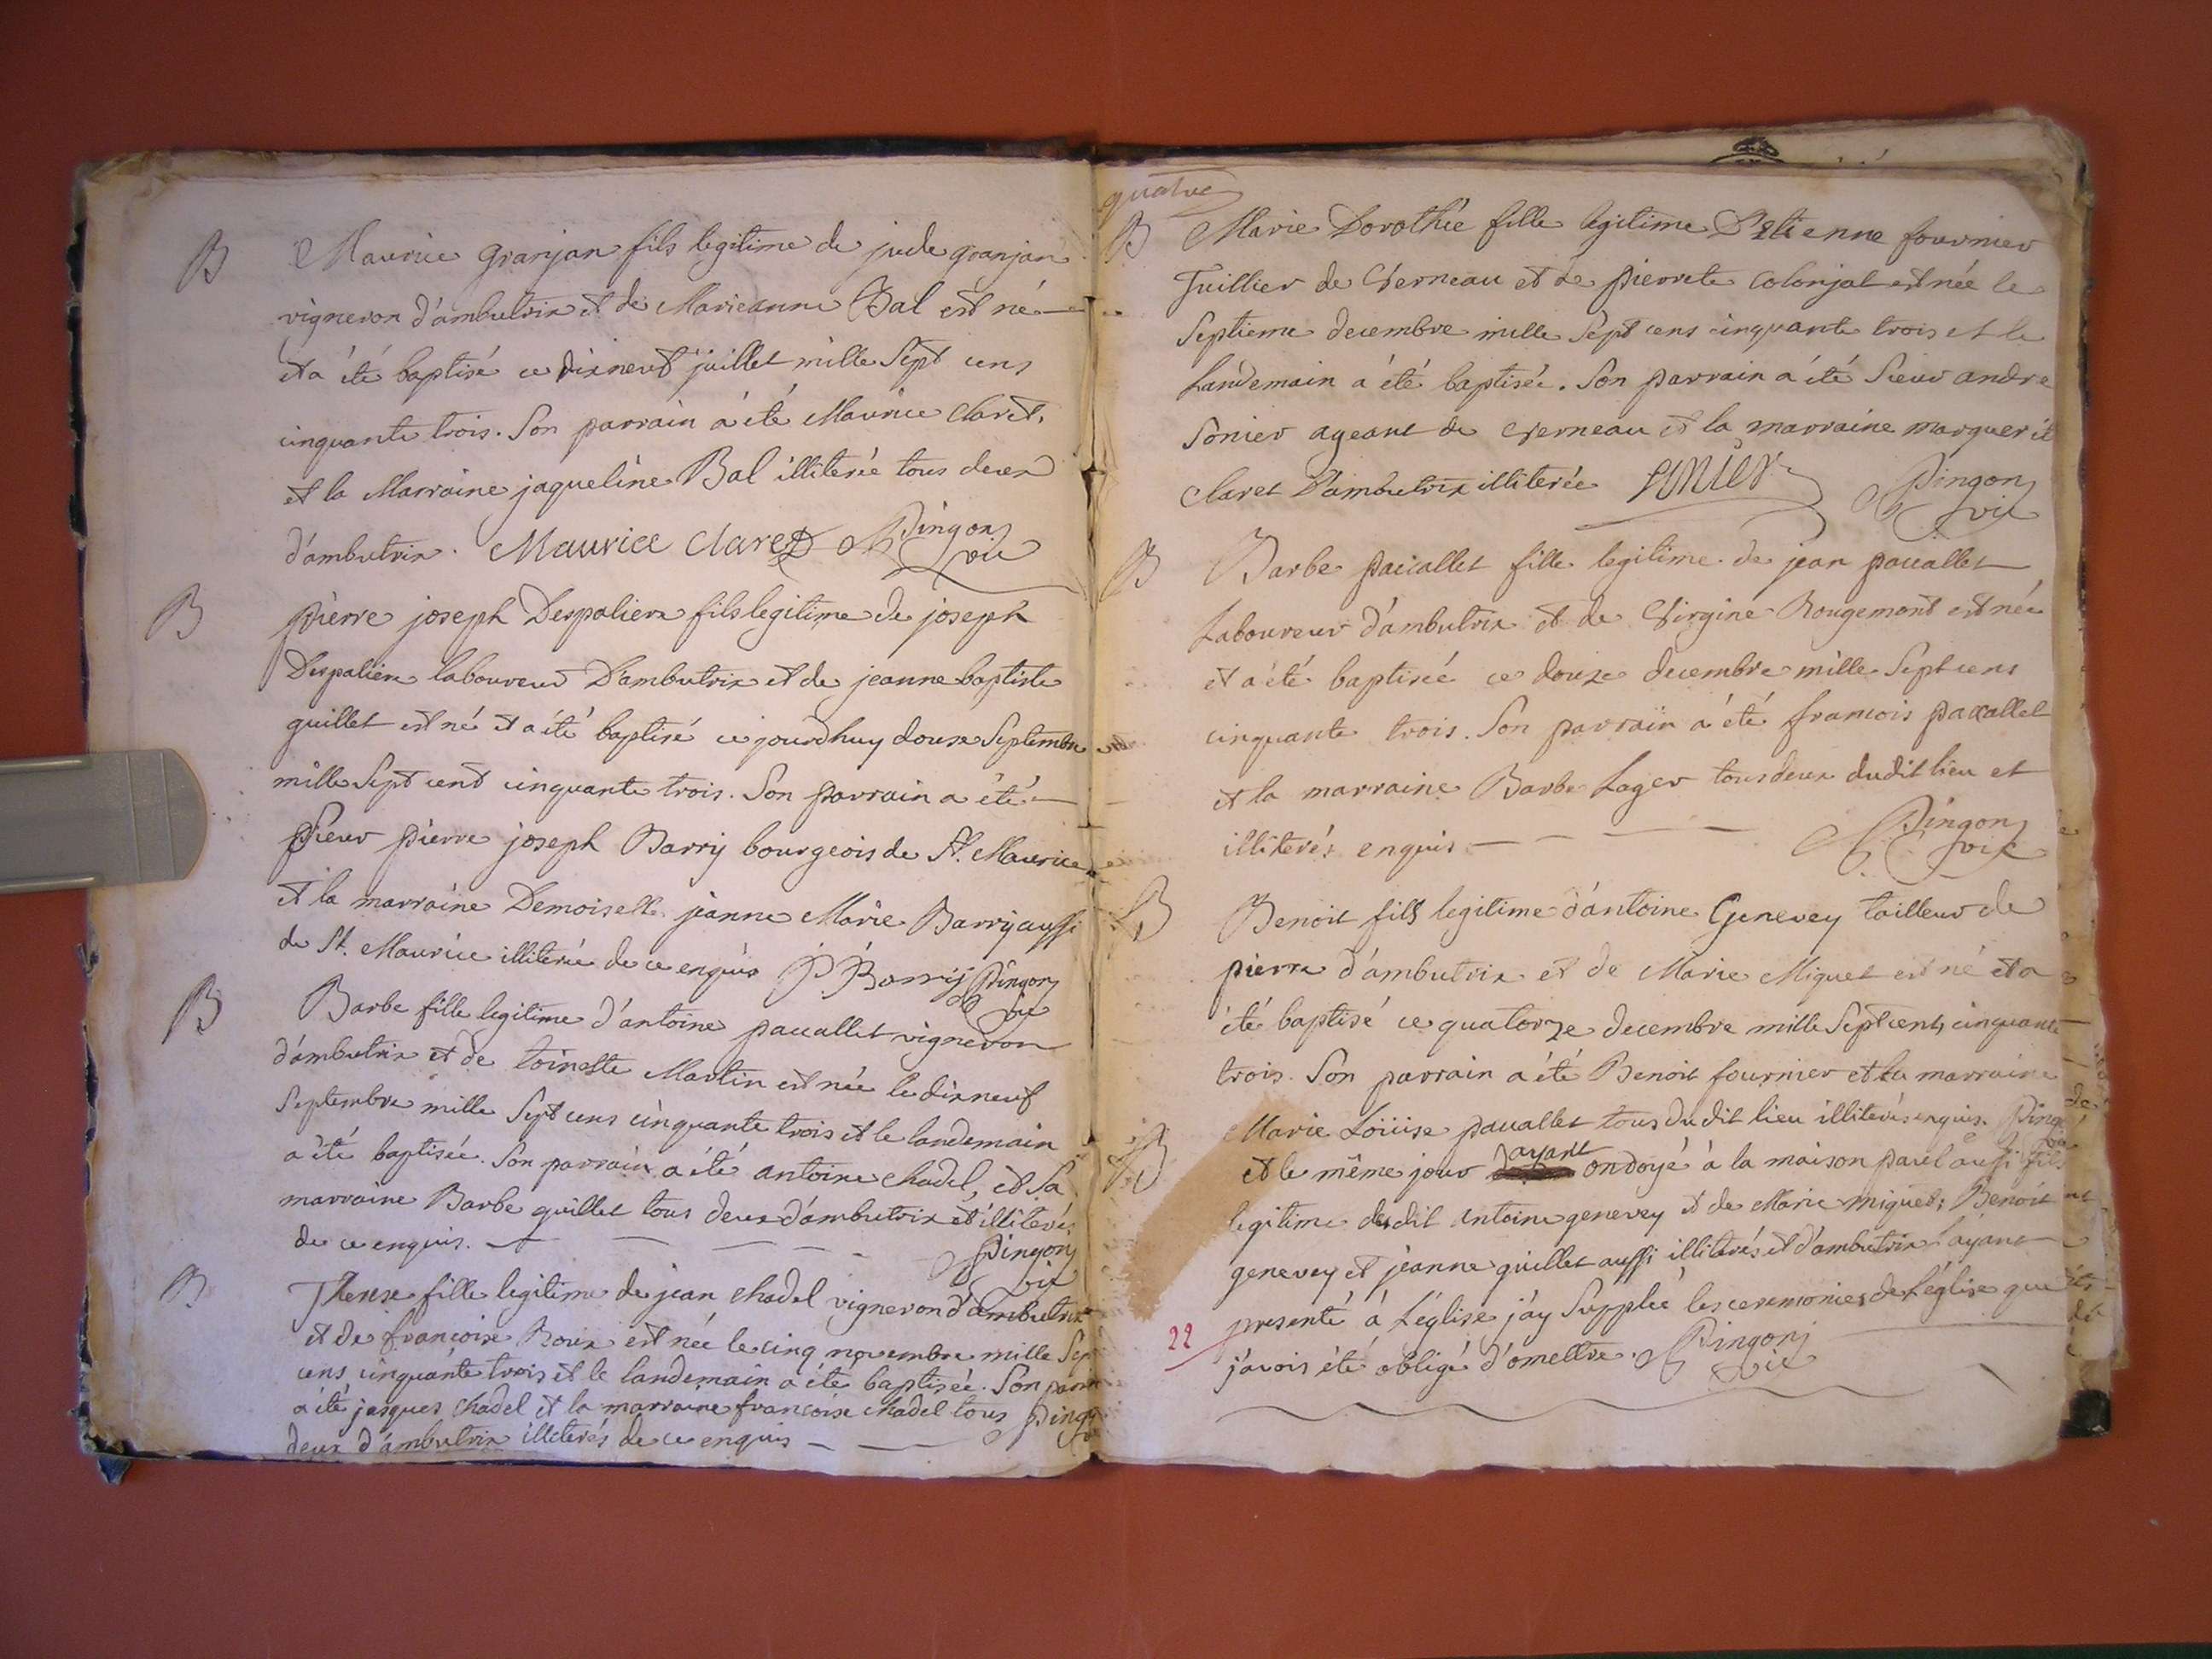 B Maurice granjan fils legitime de jude granjan
vigneron d'ambutrix et de Marieanne Bal est né
et a été baptisé ce dixneuf juillet mille Sept cens
cinquante trois. Son parrain a été Maurice Claret,
et la Marraine jaqueline Bal illiterée tous deux
d'ambutrix. Maurice Claret Pingon vic
B pierre joseph Despalieux fils legitime de joseph
Despalieux laboureur D'ambutrix et de jeanne baptiste
guillet est né et a été baptisé ce jourdhuy douze Septembre
mille Sept cent cinquante trois. Son parrain a été
Sieur pierre joseph Barrij bourgeois de St. Maurice
et la marraine Demoiselle jeanne Marie Barrij aussi
de St. Maurice illiterée de ce enquis P. Barrij Pingon vic
B Barbe fille legitime d'antoine paccallet vigneron
d'ambutrix et de toinette Martin est née le dixneuf
Septembre mille Sept cens cinquante trois et le landemain
a été baptisée. Son parrain a été antoine chadel, et Sa
marraine Barbe guillet tous deux d'ambutrix et illiterés
de ce enquis. Pingon vic
B Therese fille legitime de jean chadel vigneron d'ambutrix
et de francoise Roux est née le cinq novembre mille Sept
cens cinquante trois et le landemain a été baptisée. Son parrain
a été jasques chadel et la marraine francoise chadel tous Pingon
deux d'ambutrix illiterés de ce enquis
quatre
B Marie Dorothée fille legitime D'Etienne fournier
Tuillier de Verneau et de pierrete Colonjal est née le
Septieme decembre mille Sept cens cinquante trois et le
Landemain a été baptisée. Son parrain a été Sieur andre
Sonier ageant de Verneau et la marraine marguerite
Claret D'ambutrix illiterée Sonier Pingon vic
B Barbe paccallet fille legitime de jean paccallet
Laboureur d'ambutrix et de Virgine Rougemont est née
et a été baptisée ce douze decembre mille Sept cens
cinquante trois. Son parrain a été francois paccallet
et la marraine Barbe Lager tous deux dudit lieu et
illiterés enquis Pingon vic
B Benoit fils legitime d'antoine Genevey tailleur de
pierre d'ambutrix et de Marie Miguet est né et a
été baptisé ce quatorze decembre mille Sept cent cinquante
trois. Son parrain a été Benoit fournier et la marraine
Marie Loüise paccallet tous dudit lieu illiterés enquis. Ping
B et le même jour ayant ondoyé à la maison paul aussi fils
legitime dudit antoine genevey et de Marie miguet; Benoit
genevey et jeanne guillet aussi illiterés et d'ambutrix l'ayant
presenté à L'église j'ay Supplée les ceremonies de L'église que
22 j'avois été obligé d'omettre. Pingon vic